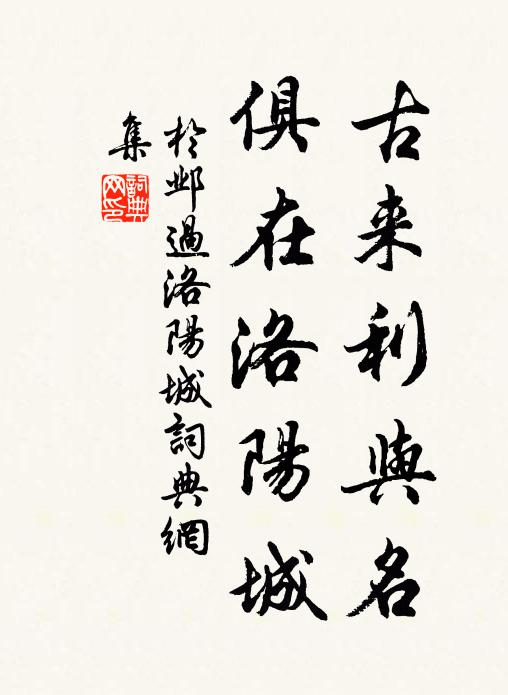 古来利與名
俱在洛陽城
於邺過洛陽城詞典網
集
詞典
网印